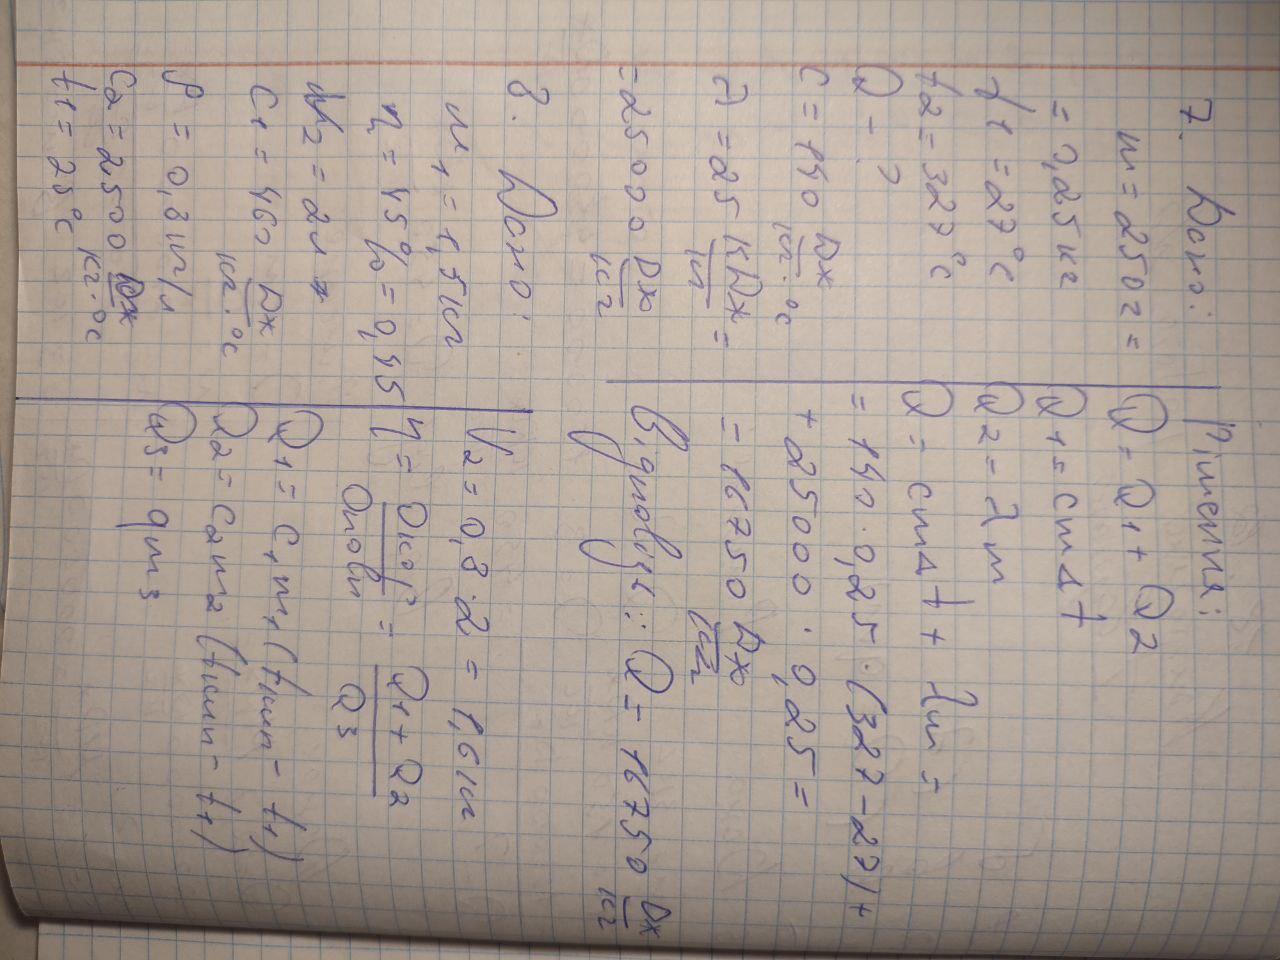 7. Дано:
m = 250г =
= 0,25кг
t1 = 27°C
t2 = 327°C
Q - ?
c = 140 Дж/кг·°C
λ = 25 кДж/кг =
= 25000 Дж/кг
Рішення:
Q = Q1 + Q2
Q1 = cmΔt
Q2 = λm
Q = cmΔt + λm =
= 140 · 0,25 · (327 - 27) +
+ 25000 · 0,25 =
= 16750 Дж/кг
Відповідь: Q = 16750 Дж/кг
8. Дано:
m1 = 1,5кг
η = 45% = 0,45
V2 = 2л
c1 = 460 Дж/кг·°C
ρ = 0,8кг/л
c2 = 2500 Дж/кг·°C
t1 = 25°C
V2 = 0,8 · 2 = 1,6кг
η = Qкор/Qповн = Q1 + Q2/Q3
Q1 = c1m1(tкип - t1)
Q2 = c2m2(tкип - t1)
Q3 = qm3